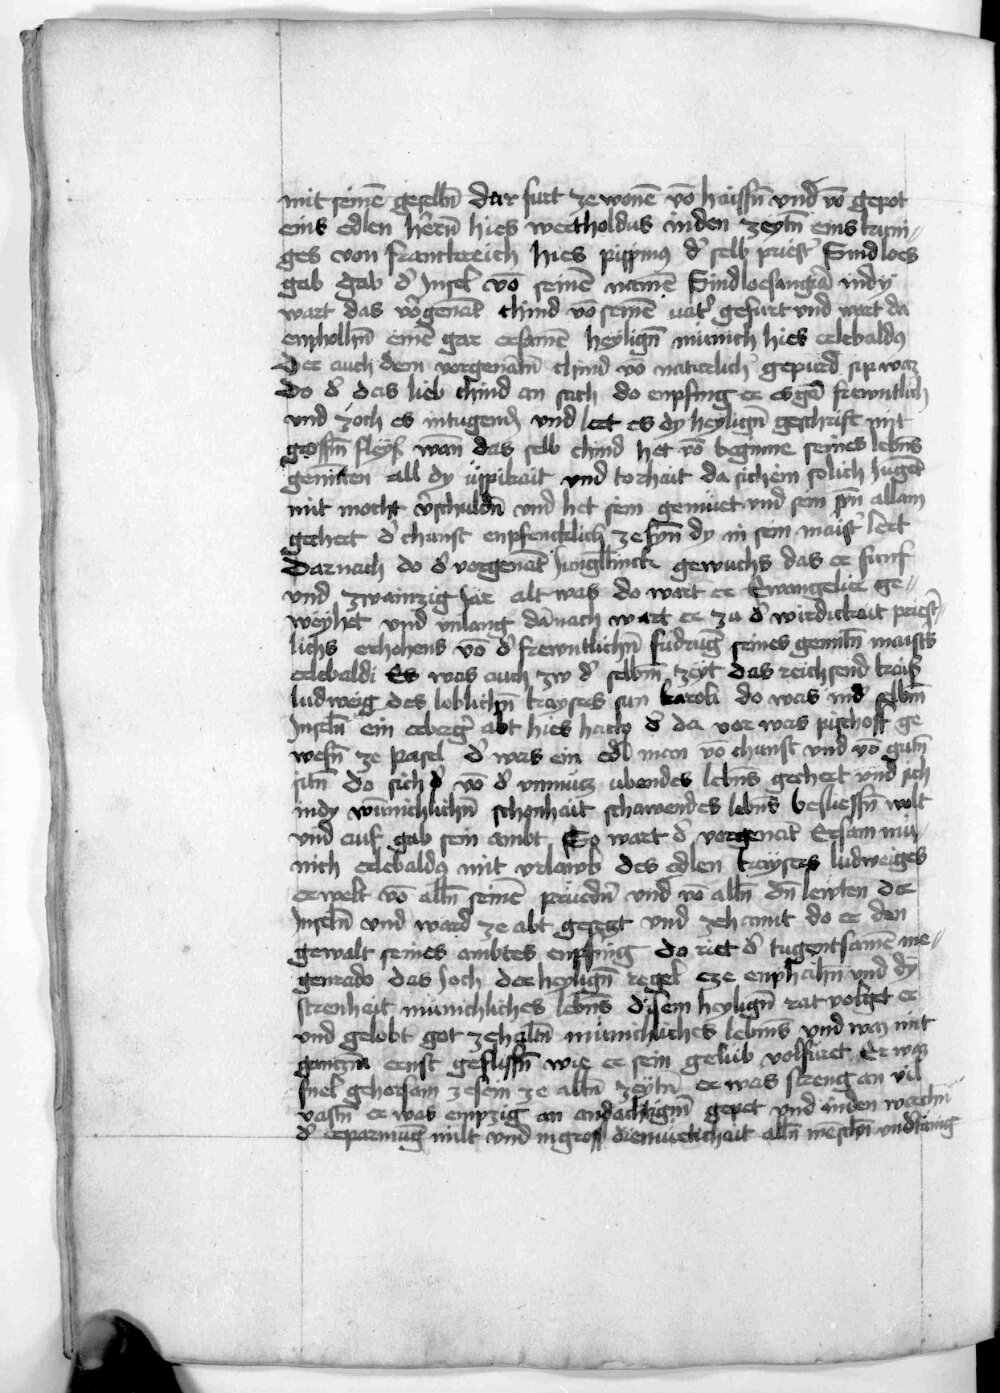 mit seinē geselln̄ dar furt ze wonē vō haissn̄ vnd vō gepot
eins edlen hern̄ hies wertholdus in den zeytn̄ eins kuni-
ges von franckreich hies pippinꝰ d' selb priest' Sindloes
gab gab d' Insel vō seinē namē Sindloesaugia in dy
wart das vorgenāt chind vō seinē vat' gefurt vnd wart da
enpholhn̄ einē gar ersamē heylign̄ münich hies erlebaldꝰ
Der auch dem vorgenātn̄ chind vō naturlich' gepurd sip waz
do d' das lieb chind an sach do enpfing er es gar frewntlich
vnd zoch es in tugend vnd lert es dy heylign̄ geschrift mit
grossn̄ fleyſ wan̄ das selb chind het vō beginne seines lebn̄s
all dy üppikait vnd torhait da sich in solich Jugēt
mit mocht v'schuldn̄ vnd het sein gemüet vnd sein syn̄ allain
gechert d' chunst enpfencklich ze syn̄ dy in sein maist' lert
Darnach do d' vorgenāt Jungling gewuchs das er funf
vnd zwainzig Jar alt was do wart er Ewangelier ge-
weyhet vnd vnlang dānach wart er zu d' wirdickait priest-
lichs erhohens vō d' frewntlichn̄ fudrūg seines genātn̄ maist's
erlebaldi Es was auch zw d' selbn̄ zeyt das reichsend kaiſ
ludweig des loblichn̄ kaysers sun karoli do was in d' selbn̄
Inseln̄ ein erberg' abt hies hatto d' da vor was pischoff ge
wesn̄ ze pasel d' was ein edl man vō chunst vnd vō gutn̄
sitn̄ do sich d' vō d' vnmüz vbendes lebn̄s gechert vnd sich
in dy wūnichlichn̄ schonhait schawendes lebn̄s besliessn̄ wolt
vnd auf gab sein ambt So wart d' vorgenāt Ersam mü-
nich erlebaldꝰ mit vrlawb des edlen kaysers ludweiges
erwelt vō alln̄ seinē prüedn̄ vnd vō alln̄ dn̄ lewten der
Inseln̄ vnd ward ze abt geseczt vnd zehannt do er den
gewalt seines ambtes enpfing do riet d' tugentsamē me-
genrado das Joch der heylign̄ regel cze enphahn̄ vnd dy
strenhait münichliches lebn̄s disem heylign̄ rat volget er
vnd gelobt got ze haltn̄ münichliches lebenns vnd waz mit
gantzm̄ ernst geflissn̄ wie er sein gelüb volfüret Er waz
snel gehorsam ze sein ze alln̄ zeytn̄ er was streng an vil
vastn̄ er was empzig an andachtign̄ gepet vnd in den werchn̄
d' erparmūg milt vnd in gross diemüetichait alln̄ mēschn̄ vnd'tānig